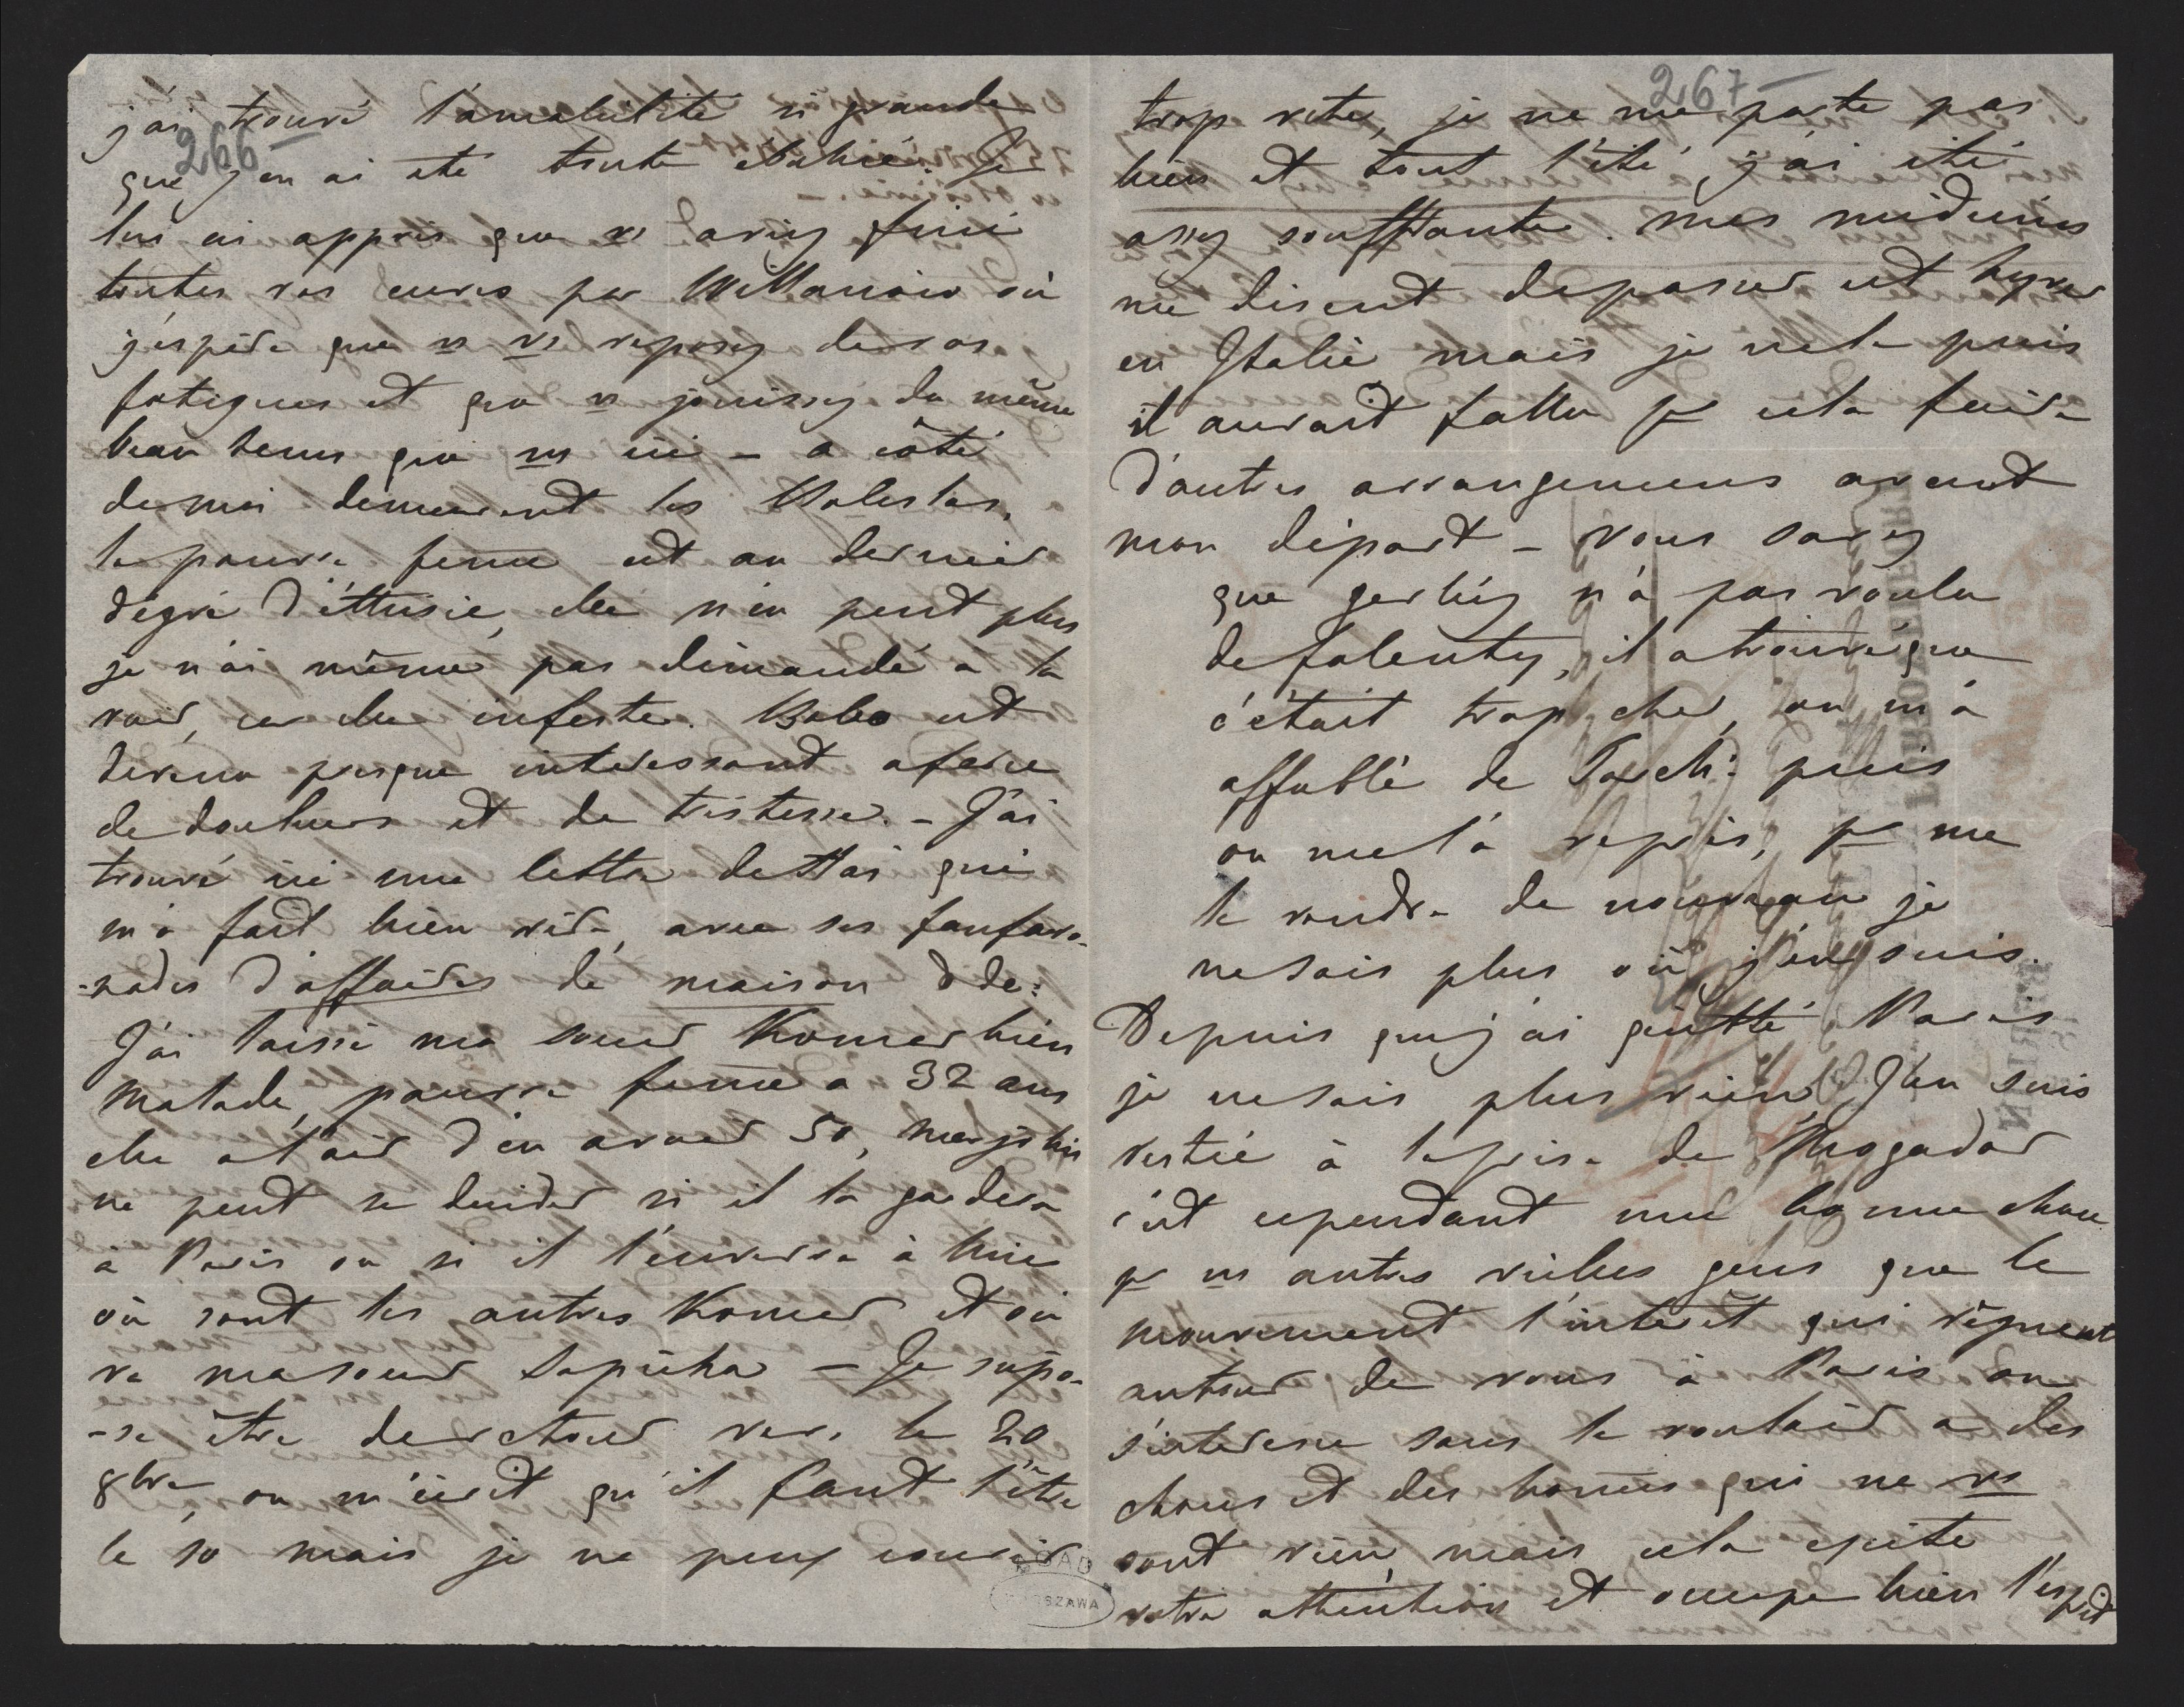 266
j'ai trouvé l'amabilité si grande
que j'en ai eté toute ebahie. Je
lui ai appris que vs aviez fini
toutes vos cures par Willanow où
j'espère que vs vs reposez de vos
fatigues et que vs jouissez du même
beau tems que ns ici – a côté
de moi demeurent les
la pauvre feme est au dernier
dégré d'éttisie, elle n'en peut plus
je n'ai même pas demandé a la
voir, car elle infecte. Bobo est
devenu presque interessant a force
de douleurs et de tristesse. – J'ai
trouvé ici une lettre de qui
m'a fait bien rire, avec ses fanfaro-
-nades d'affaires de maison &de:
J'ai laissé ma soeur Komar bien
malade, pauvre feme a 32 ans
elle a l'air d'en avoir 50,
ne peut se decider si il la gardera
à Paris ou si il l'enverra à Nice
où sont les autres Komar et où
va ma soeur Sapieha – Je supo-
-se être de retour vers le 20
8bre, on m'écrit qu'il faut l'être
le 10 mais je ne peux courir
267
trop vite, je ne me porte pas
bien et tout l'été j'ai été
assez souffrante. mes médecins
me disent de passer cet hyver
en Italie mais je ne le puis
il aurait fallu pr cela faire
d'autres arrangemens avant
mon départ – vous savez
que n'a pas voulu
de Falenty, il a trouvé que
c'était trop cher, on m'a
affublé de puis
on me l'a repris, pr me
le rendre de nouveau je
ne sais plus où j'en suis.
Depuis que j'ai quitté Paris
je ne sais plus rien, J'en suis
restée à la prise de Mogador
c'est cependant une bonne chose
pr ns autres vieilles gens que le
mouvement l'intérêt qui règnent
autour de vous à Paris on
s'interesse sans le vouloir a des
choses et des homes qui ne vs
sont rien mais cela excite
votre attention et occupe bien l'esprit
AGAD
WARSZAWA